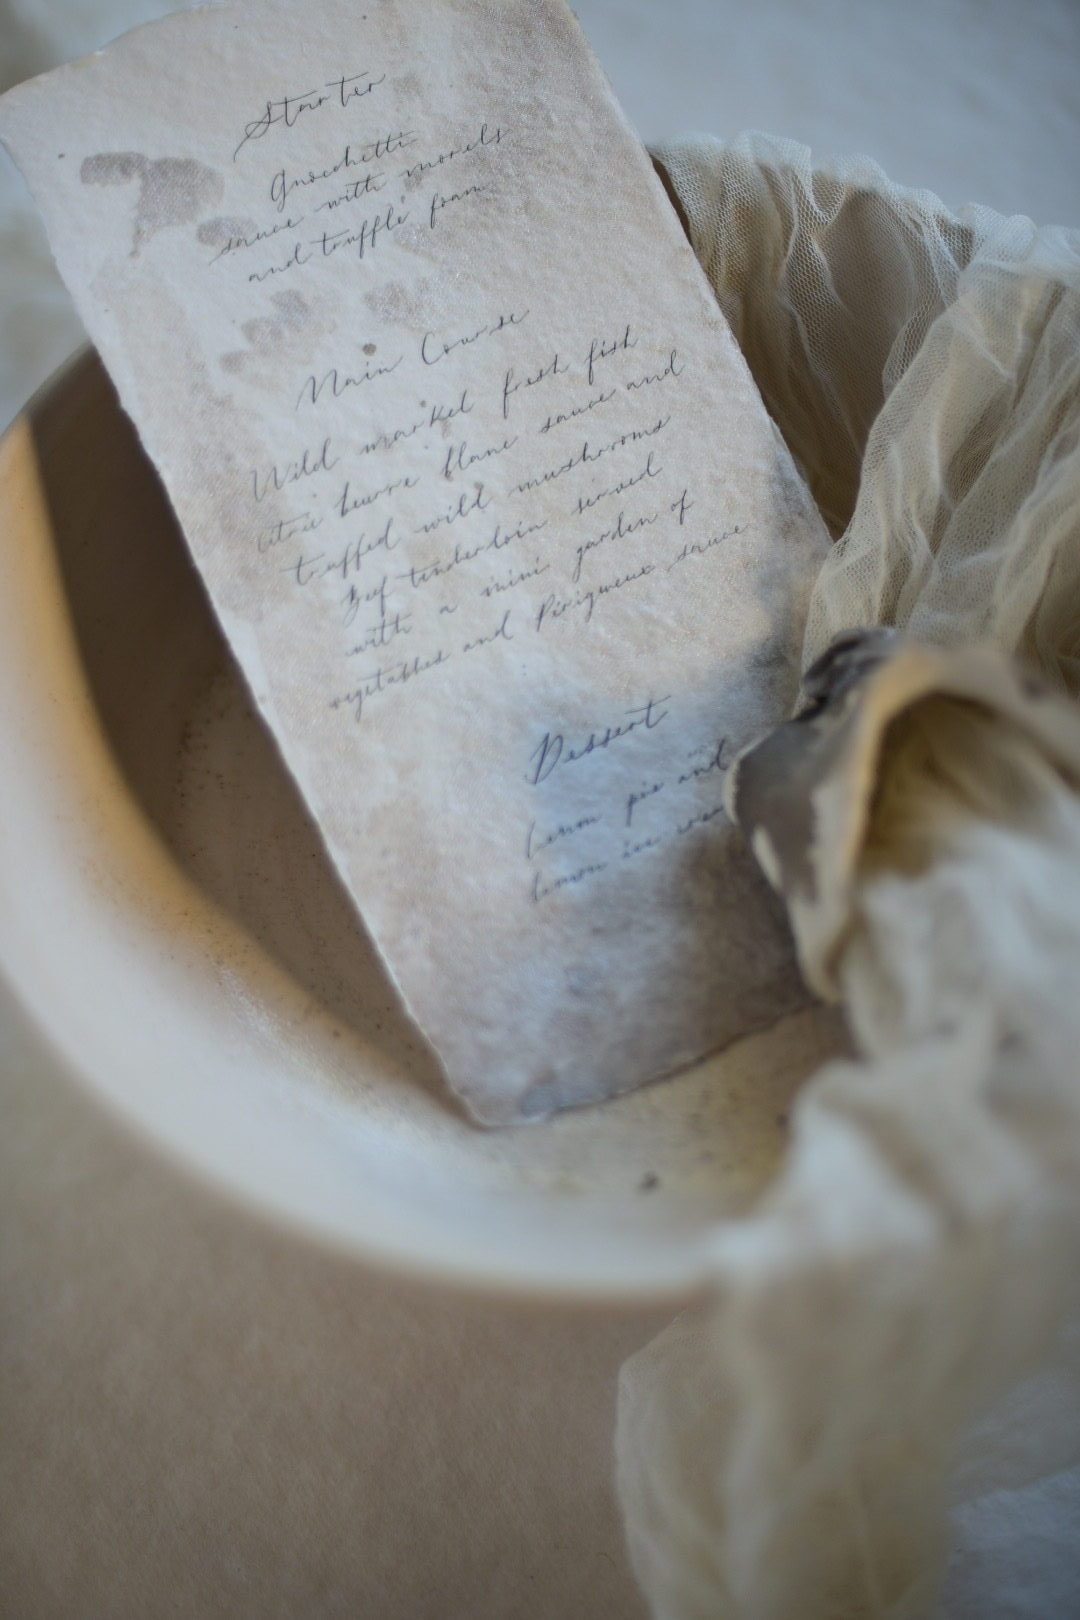 Starter
Gnocchetti
sauce with morels
and truffle foam
Main Course
Wild market fresh fish
citric beurre blanc sauce and
truffed wild mushrooms
Beef tenderloin served
with a mini garden of
vegetables and Périgueux sauce
Dessert
Lemon pie and
Lemon ice